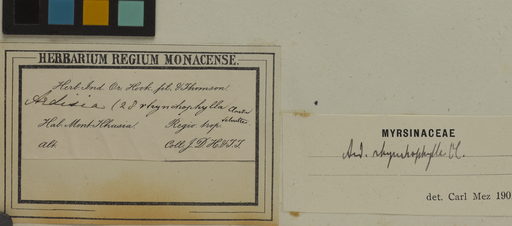 HERBARIUM REGIUM MONACENSE.
Herb. Ind. Or. Hook. fil. & Thomson.
Ardisia (28 rhynchophylla
Hab. Mont. Khasia. Regio trop.
Alt. Coll. J. D. H. & T. T.
MYRSINACEAE
Ard. rhynchophylla Cl.
det. Carl Mez 190